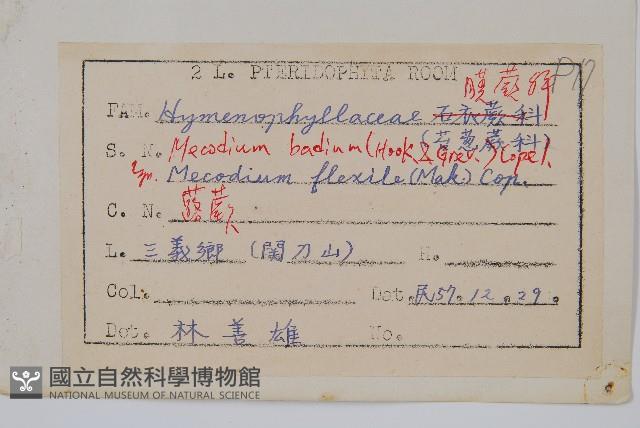 2 L. PTERIDOPHITA ROOM P17
膜蕨科
FAM. Hymenophyllaceae 石衣蕨科
(苔蕨科)
S. N. Mecodium badium (Hook & Grev.) Cope).
Syn. Mecodium flexile (Mak) Cop.
C. N. 蕗蕨
L. 三義鄉 (關刀山) H.
Col. Dat. 民57.12.29.
Det. 林善雄 No.
國立自然科學博物館
NATIONAL MUSEUM OF NATURAL SCIENCE